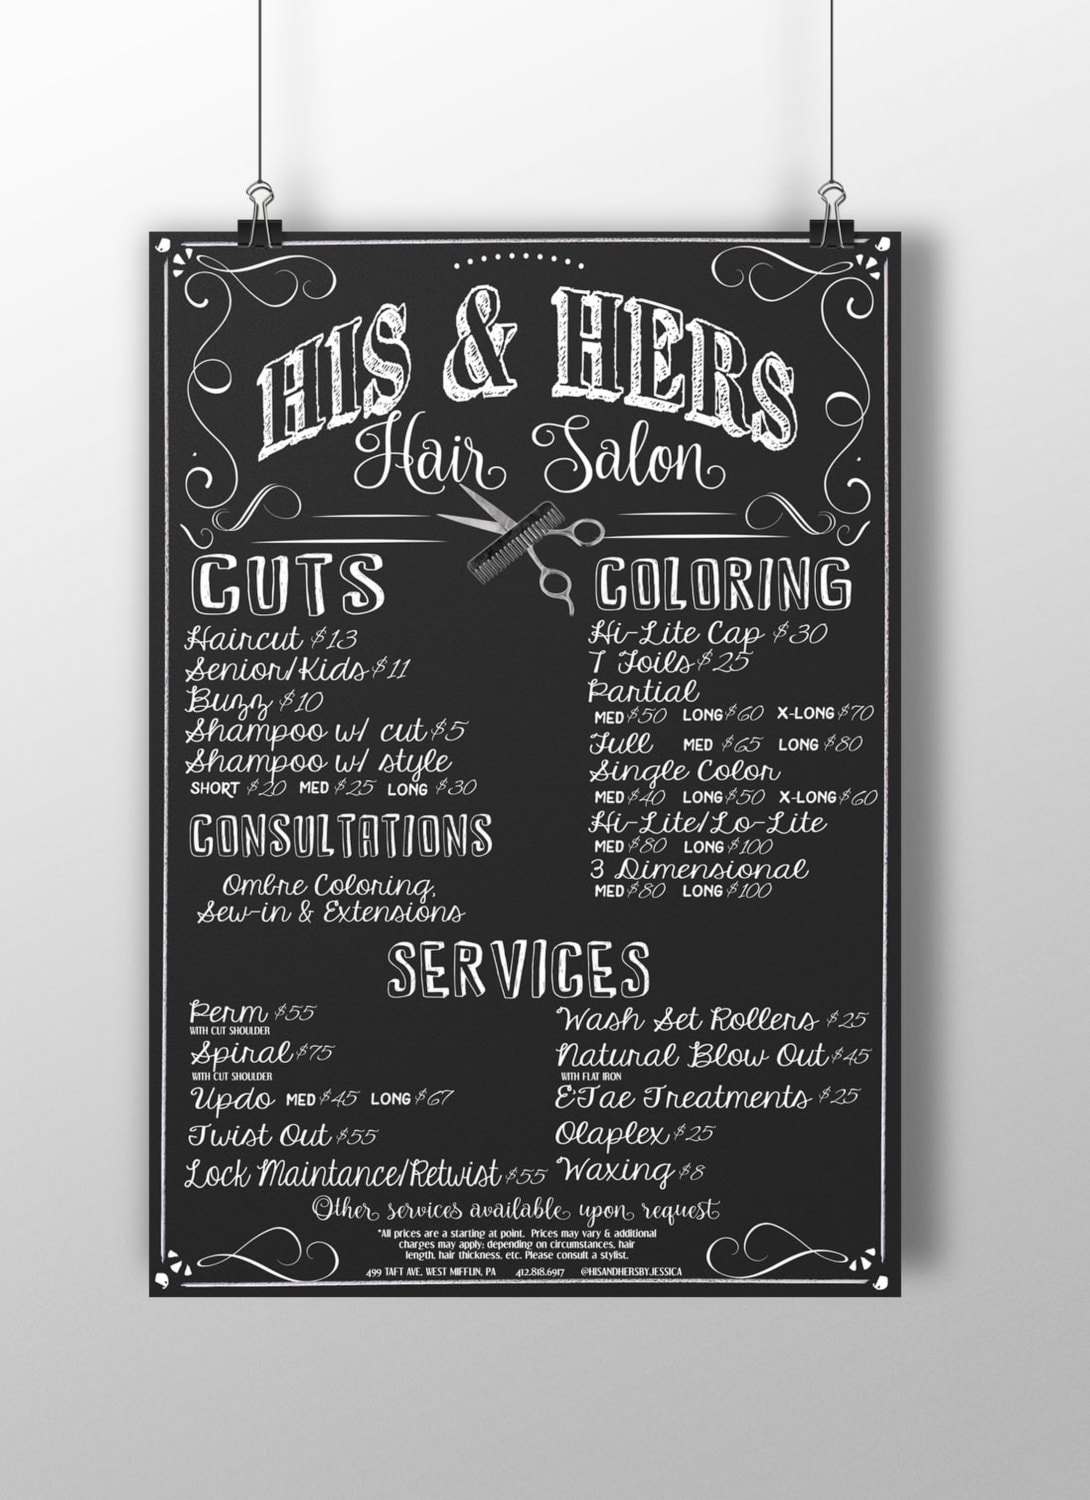 HIS & HERS
Hair Salon
CUTS
Haircut $13
Senior/Kids $11
Buzz $10
Shampoo w/ cut $5
Shampoo w/ style
SHORT $20 MED $25 LONG $30
CONSULTATIONS
Ombre Coloring,
Sew-in & Extensions
COLORING
Hi-Lite Cap $30
7 Foils $25
Partial
MED $50 LONG $60 X-LONG $70
Full MED $65 LONG $80
Single Color
MED $40 LONG $50 X-LONG $60
Hi-Lite/Lo-Lite
MED $80 LONG $100
3 Dimensional
MED $80 LONG $100
SERVICES
Perm $55
WITH CUT SHOULDER
Spiral $75
WITH CUT SHOULDER
Updo MED $45 LONG $67
Twist Out $55
Lock Maintance/Retwist $55
Wash Set Rollers $25
Natural Blow Out $45
WITH FLAT IRON
E'Tae Treatments $25
Olaplex $25
Waxing $8
Other services available upon request
*All prices are a starting at point. Prices may vary & additional
charges may apply; depending on circumstances, hair
length, hair thickness, etc. Please consult a stylist.
499 TAFT AVE, WEST MIFFLIN, PA 412.818.6917 @HISANDHERSBYJESSICA